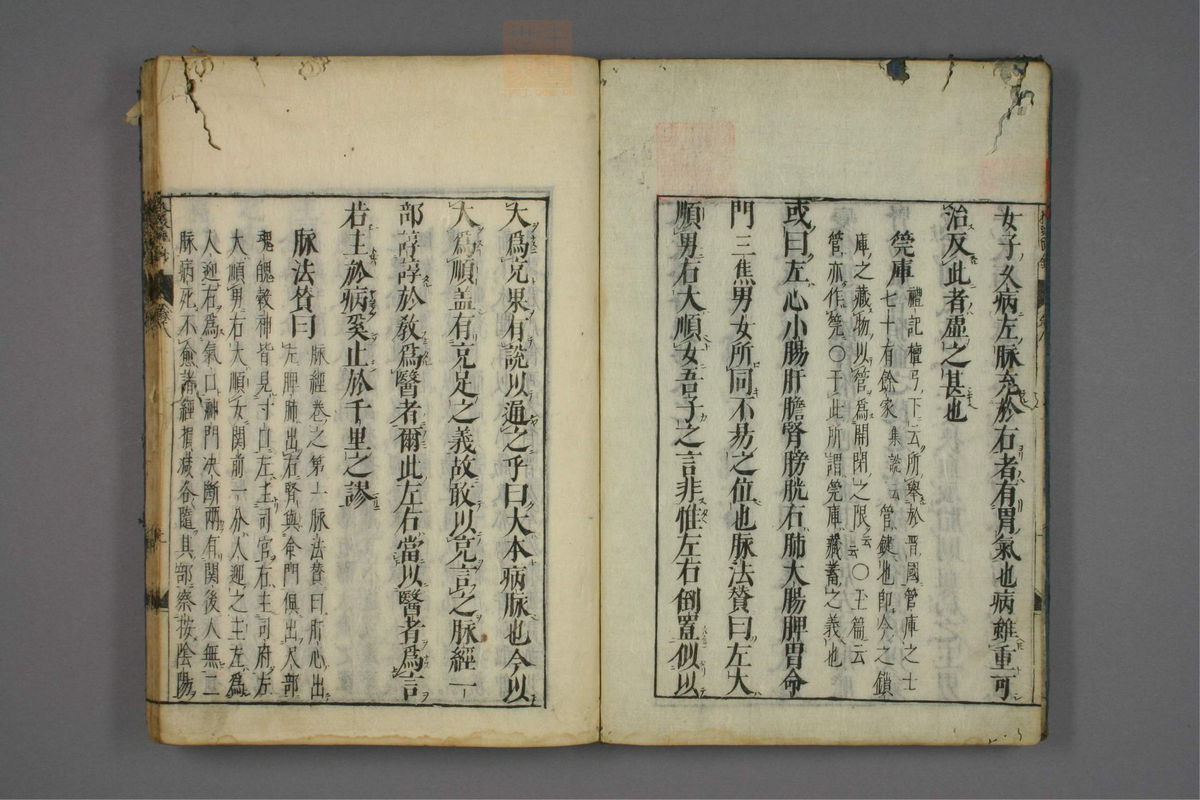 女子久病左脉充於右者有胃氣也病雖重可
治反此者虚之甚也
筦庫
禮記檀弓下云所舉於晋國管庫之士
七十有餘家集説云管鍵也即今之鎖
庫之藏物以管爲開閉之限云○玉篇云
筦亦作管○于此所謂筦庫藏蓄之義也
或曰左心小腸肝膽腎膀胱右肺大腸脾胃命
門三焦男女所同不易之位也脉法賛曰左大
順男右大順女吾子之言非惟左右倒置似以
大爲充果有説以通之乎曰大本病脉也今以
大爲順盖有充足之義故敢以充言之脉經一
部諄諄於教爲醫者爾此左右當以醫者爲言
若主於病奚止於千里之謬
脉法賛曰
脉經卷之第一脉法賛曰肝心出
左脾肺出右腎與命門俱出尺部
魂魄穀神皆見寸口左主司官右主司府左
大順男右大順女関前一分人迎之主左爲
人迎右爲氣口神門决斷兩有関後人無二
脉病死不愈諸經損減各隨其部察按陰陽